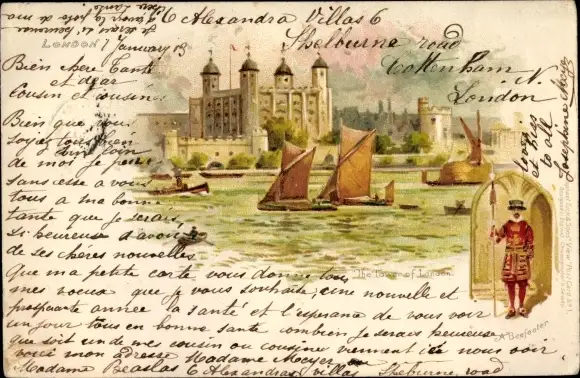 6 Alexandra Villas 6
Shelburne road
Tottenham N.
London
LONDON 1 January 19
Bien chère Tante
et dear
Cousin et cousin.
Bien que vous
soyez tous bien
loin
de moi je pense
sans cesse a vous
tous a ma bonne
tante que je serais
si heureuse d'avoir
de ses chères nouvelles
Que ma petite carte vous donne tous
mes voeux que je vous souhaite, une nouvelle et
prospérante année la santé et l'espérance de vous voir
un jour tous en bonne santé combien je serais heureuse
que soit un de mes cousin ou cousine viennent ici me voir.
voici mon adresse Madame Meyer
Madame 6 Alexandra villas Shelburne road
love
et kiss
to all
Josephine Meyer
The Tower of London.
A Beefeater